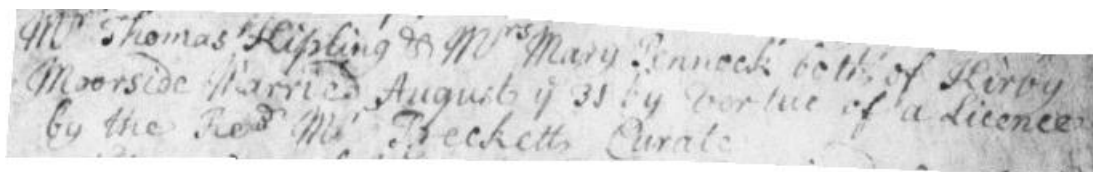 Mr Thomas Kipling & Mrs Mary Pennock both of Kirby
Moorside Married August ye 31 by vertue of a Licence
by the Red Mr Preckett Curate